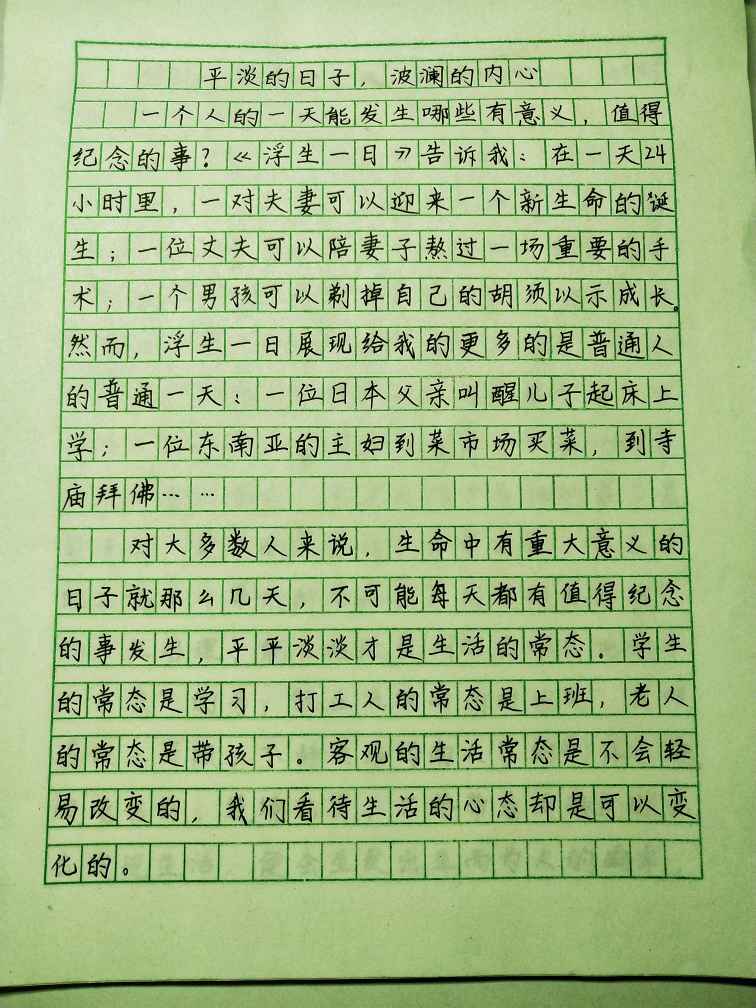 平淡的日子，波澜的内心
一个人的一天能发生哪些有意义，值得
纪念的事？《浮生一日》告诉我：在一天24
小时里，一对夫妻可以迎来一个新生命的诞
生；一位丈夫可以陪妻子熬过一场重要的手
术；一个男孩可以剃掉自己的胡须以示成长。
然而，浮生一日展现给我的更多的是普通人
的普通一天：一位日本父亲叫醒儿子起床上
学；一位东南亚的主妇到菜市场买菜，到寺
庙拜佛……
对大多数人来说，生命中有重大意义的
日子就那么几天，不可能每天都有值得纪念
的事发生，平平淡淡才是生活的常态。学生
的常态是学习，打工人的常态是上班，老人
的常态是带孩子。客观的生活常态是不会轻
易改变的，我们看待生活的心态却是可以变
化的。